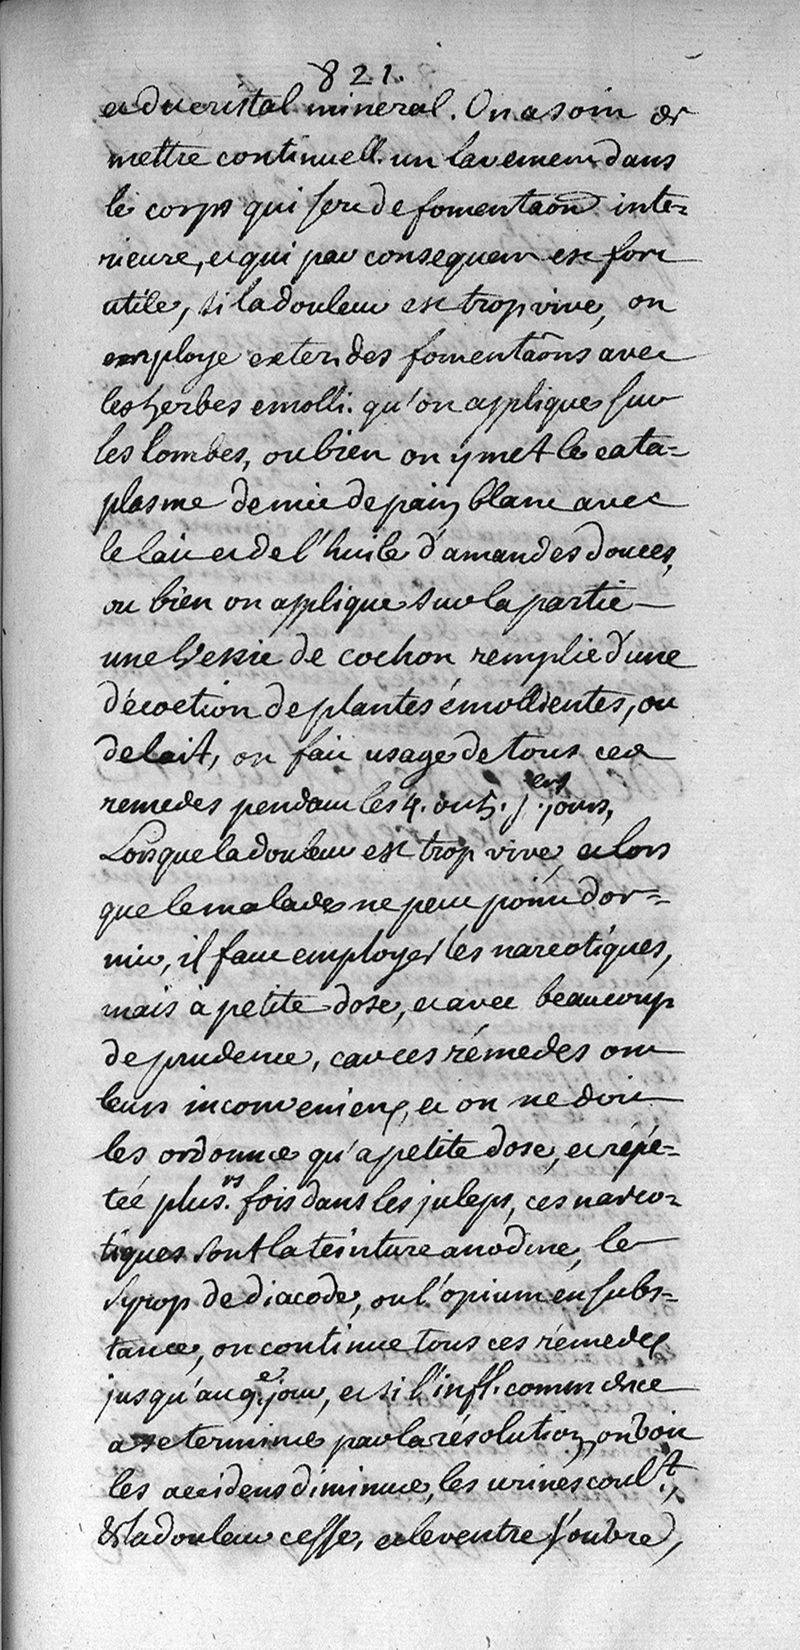 821.
et du cristal mineral. On a soin de
mettre continuell. un lavement dans
le corps qui sert de fomentaôn inte=
rieure, et qui par consequent est fort
utile, si la douleur est trop vive, on
employe exter. des fomentaôns avec
les herbes emolli. qu'on applique sur
les lombes, ou bien on y met le cata=
plasme de mie de pain blanc avec
le lait et de l'huile d'amandes douces,
ou bien on applique sur la partie
une vessie de cochon remplie d'une
décoction de plantes émollientes, ou
de lait, on fait usage de tous ces
remedes pendant les 4. ou 5. p.ers jours,
Lorsque la douleur est trop vive, et lors
que le malade ne peut point dor=
mir, il faut employer les narcotiques,
mais a petite dose, et avec beaucoup
de prudence, car ces rémedes ont
leurs inconveniens, et on ne doit
les ordonner qu'a petite dose, et répé=
tée plus.rs fois dans les juleps, ces narco=
tiques sont la teinture anodine, le
syrop de diacode, ou l'opium en subs=
tance, on continue tous ces rémedes
jusqu'au 9.e jour, et si l'infl. commence
a se terminer par la résolution, on voit
les accidens diminuer, les urines coul.t,
et la douleur cesse, et le ventre s'ouvre,